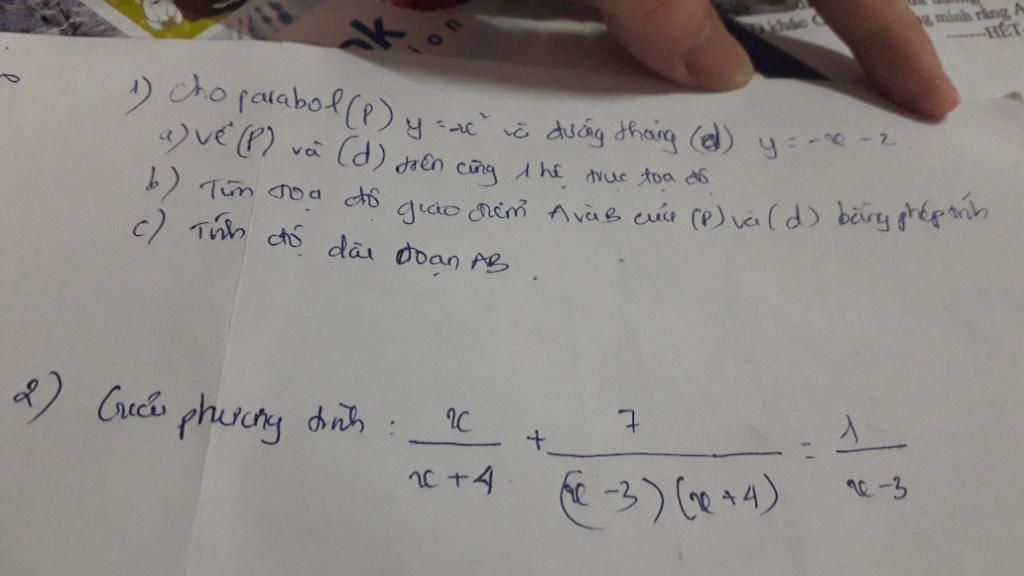 nk
ion
khác
ng minh rằng A
HẾT
1) Cho parabol (P) y = -x² và đường thẳng (d) y = -x - 2.
a) Vẽ (P) và (d) trên cùng 1 hệ trục tọa độ
b) Tìm tọa độ giao điểm A và B của (P) và (d) bằng phép tính
c) Tính độ dài đoạn AB.
2) Giải phương trình: x/(x+4) + 7/((x-3)(x+4)) = 1/(x-3)